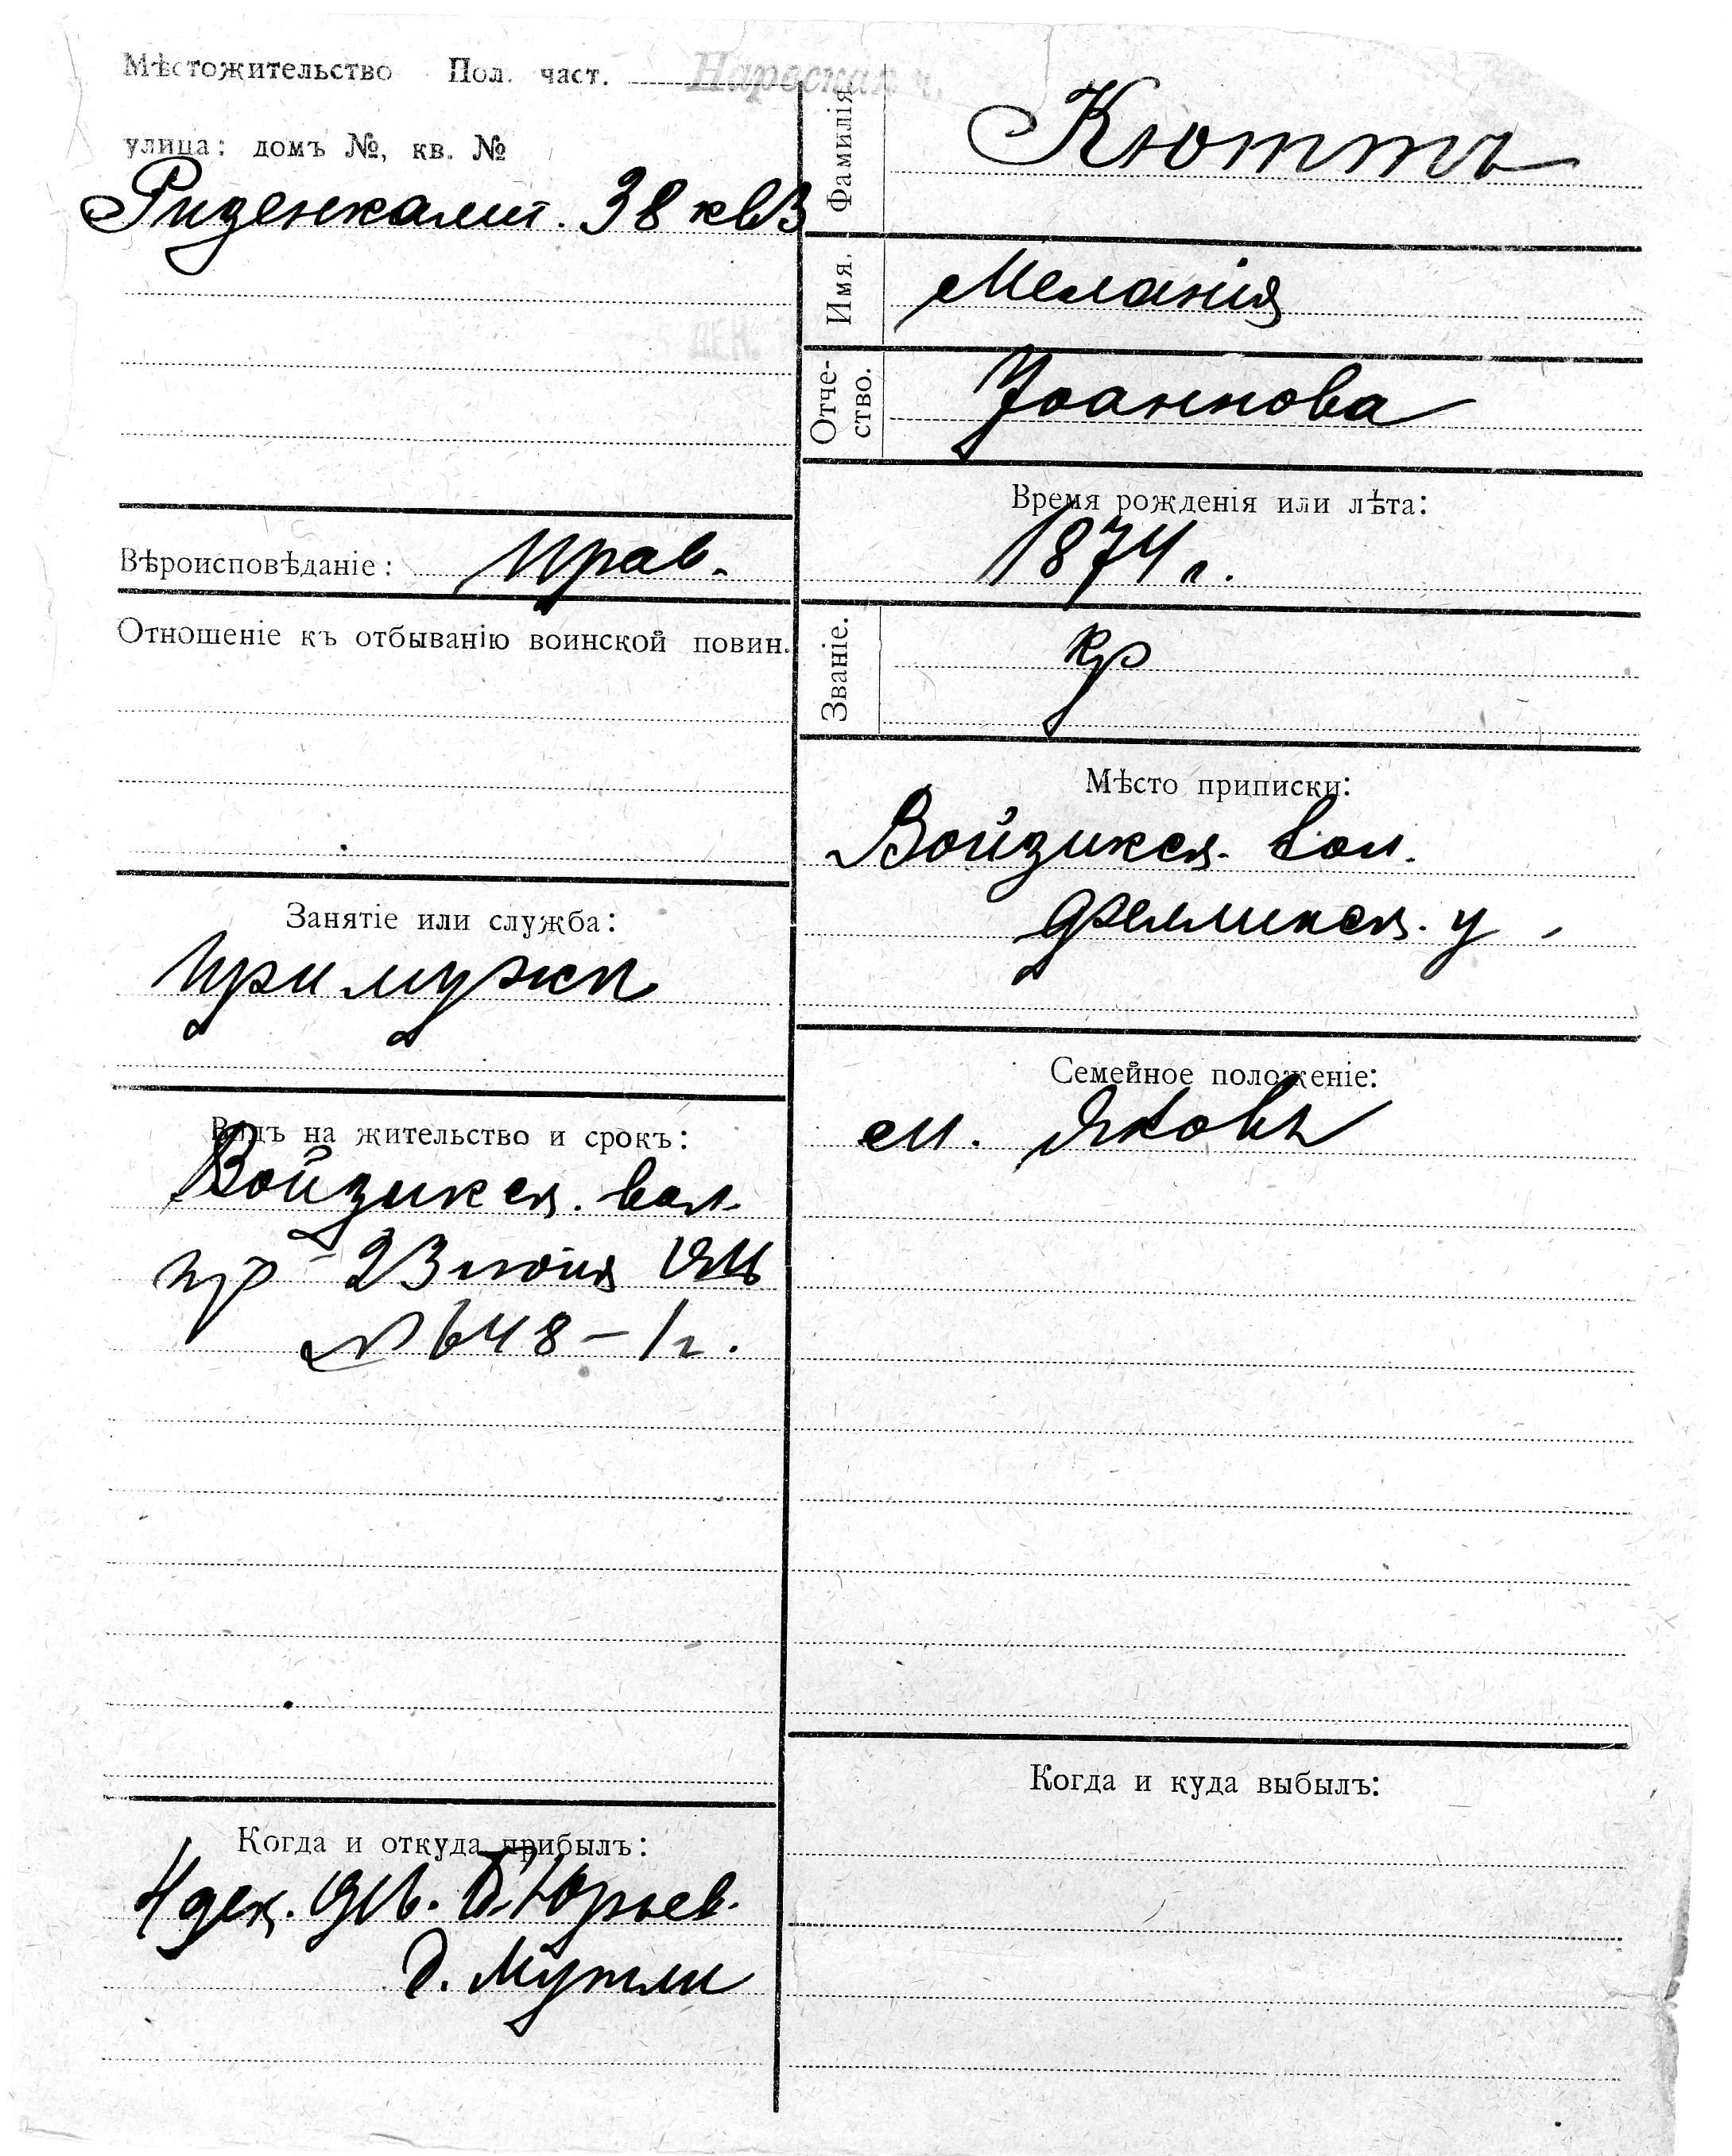 Мѣстожительство Пол. част. Нарвская ч.
улица: домъ №, кв. №
Ризенкампт. 38 кв 3
Вѣроисповѣданіе: Прав.
Отношеніе къ отбыванію воинской повин.
Занятіе или служба:
при мужѣ
Видъ на жительство и срокъ:
Войзикск. вол.
пр 23 іюня 1916
№ 648 – 1 г.
Когда и откуда прибылъ:
4 дек. 916. Юрьев.
д. Мутли
Фамилія
Кюттъ
Имя.
Меланія
Отче-
ство.
Іоаннова
Время рожденія или лѣта:
1874 г.
Званіе.
кр
Мѣсто приписки:
Войзикск. вол.
Феллинск. у.
Семейное положеніе:
м. Яковъ
Когда и куда выбылъ: